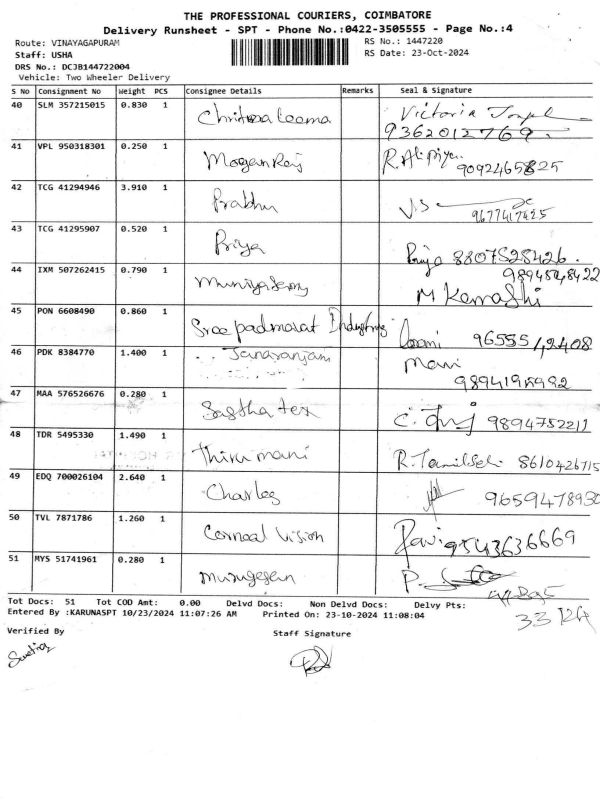 THE PROFESSIONAL COURIERS, COIMBATORE
Delivery Runsheet - SPT - Phone No.:0422-3505555 - Page No.:4
Route: VINAYAGAPURAM
RS No.: 1447220
Staff: USHA
RS Date: 23-Oct-2024
DRS No.: DCJB144722004
Vehicle: Two Wheeler Delivery
S No Consignment No Weight PCS Consignee Details Remarks Seal & Signature
40 SLM 357215015 0.830 1 Victoria
9362012769
41 VPL 950318301 0.250 1
9092465825
42 TCG 41294946 3.910 1 Prabhu V.S
9677417425
43 TCG 41295907 0.520 1 Priya Priya 8807528426
44 IXM 507262415 0.790 1
M Kamashi
45 PON 6608490 0.860 1 Sree padmavat
46 PDK 8384770 1.400 1 Janaranjani Mani
47 MAA 576526676 0.280 1 Sastha tex C. 9894752211
48 TDR 5495330 1.490 1 Thirumani R. 8610426715
49 EDQ 700026104 2.640 1 Charles 9659478930
50 TVL 7871786 1.260 1 Corneal Vision Ravi 9543636669
51 MYS 51741961 0.280 1 Murugesan P.
Tot Docs: 51 Tot COD Amt: 0.00 Delvd Docs: Non Delvd Docs: Delvy Pts:
Entered By :KARUNASPT 10/23/2024 11:07:26 AM Printed On: 23-10-2024 11:08:04
33
Verified By Staff Signature